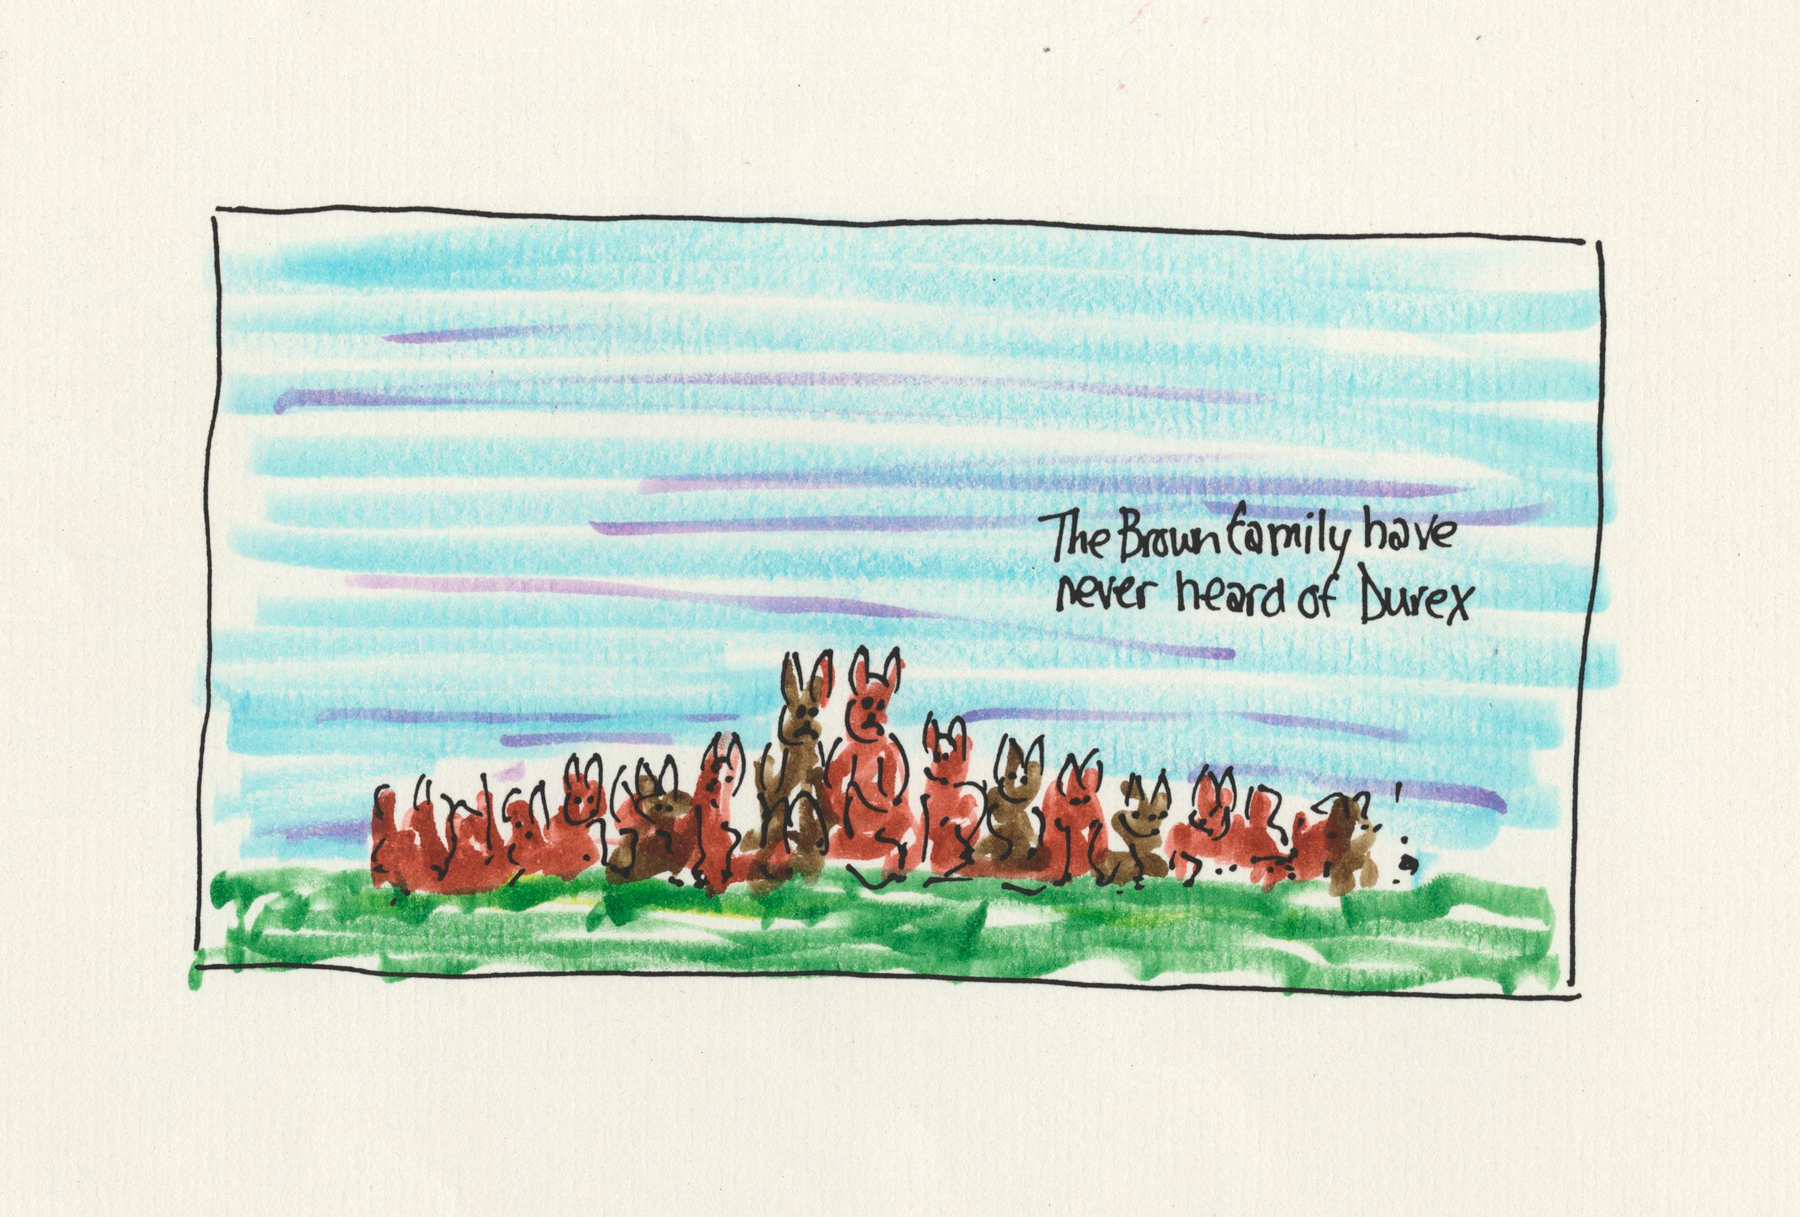 The Brown family have
never heard of Durex